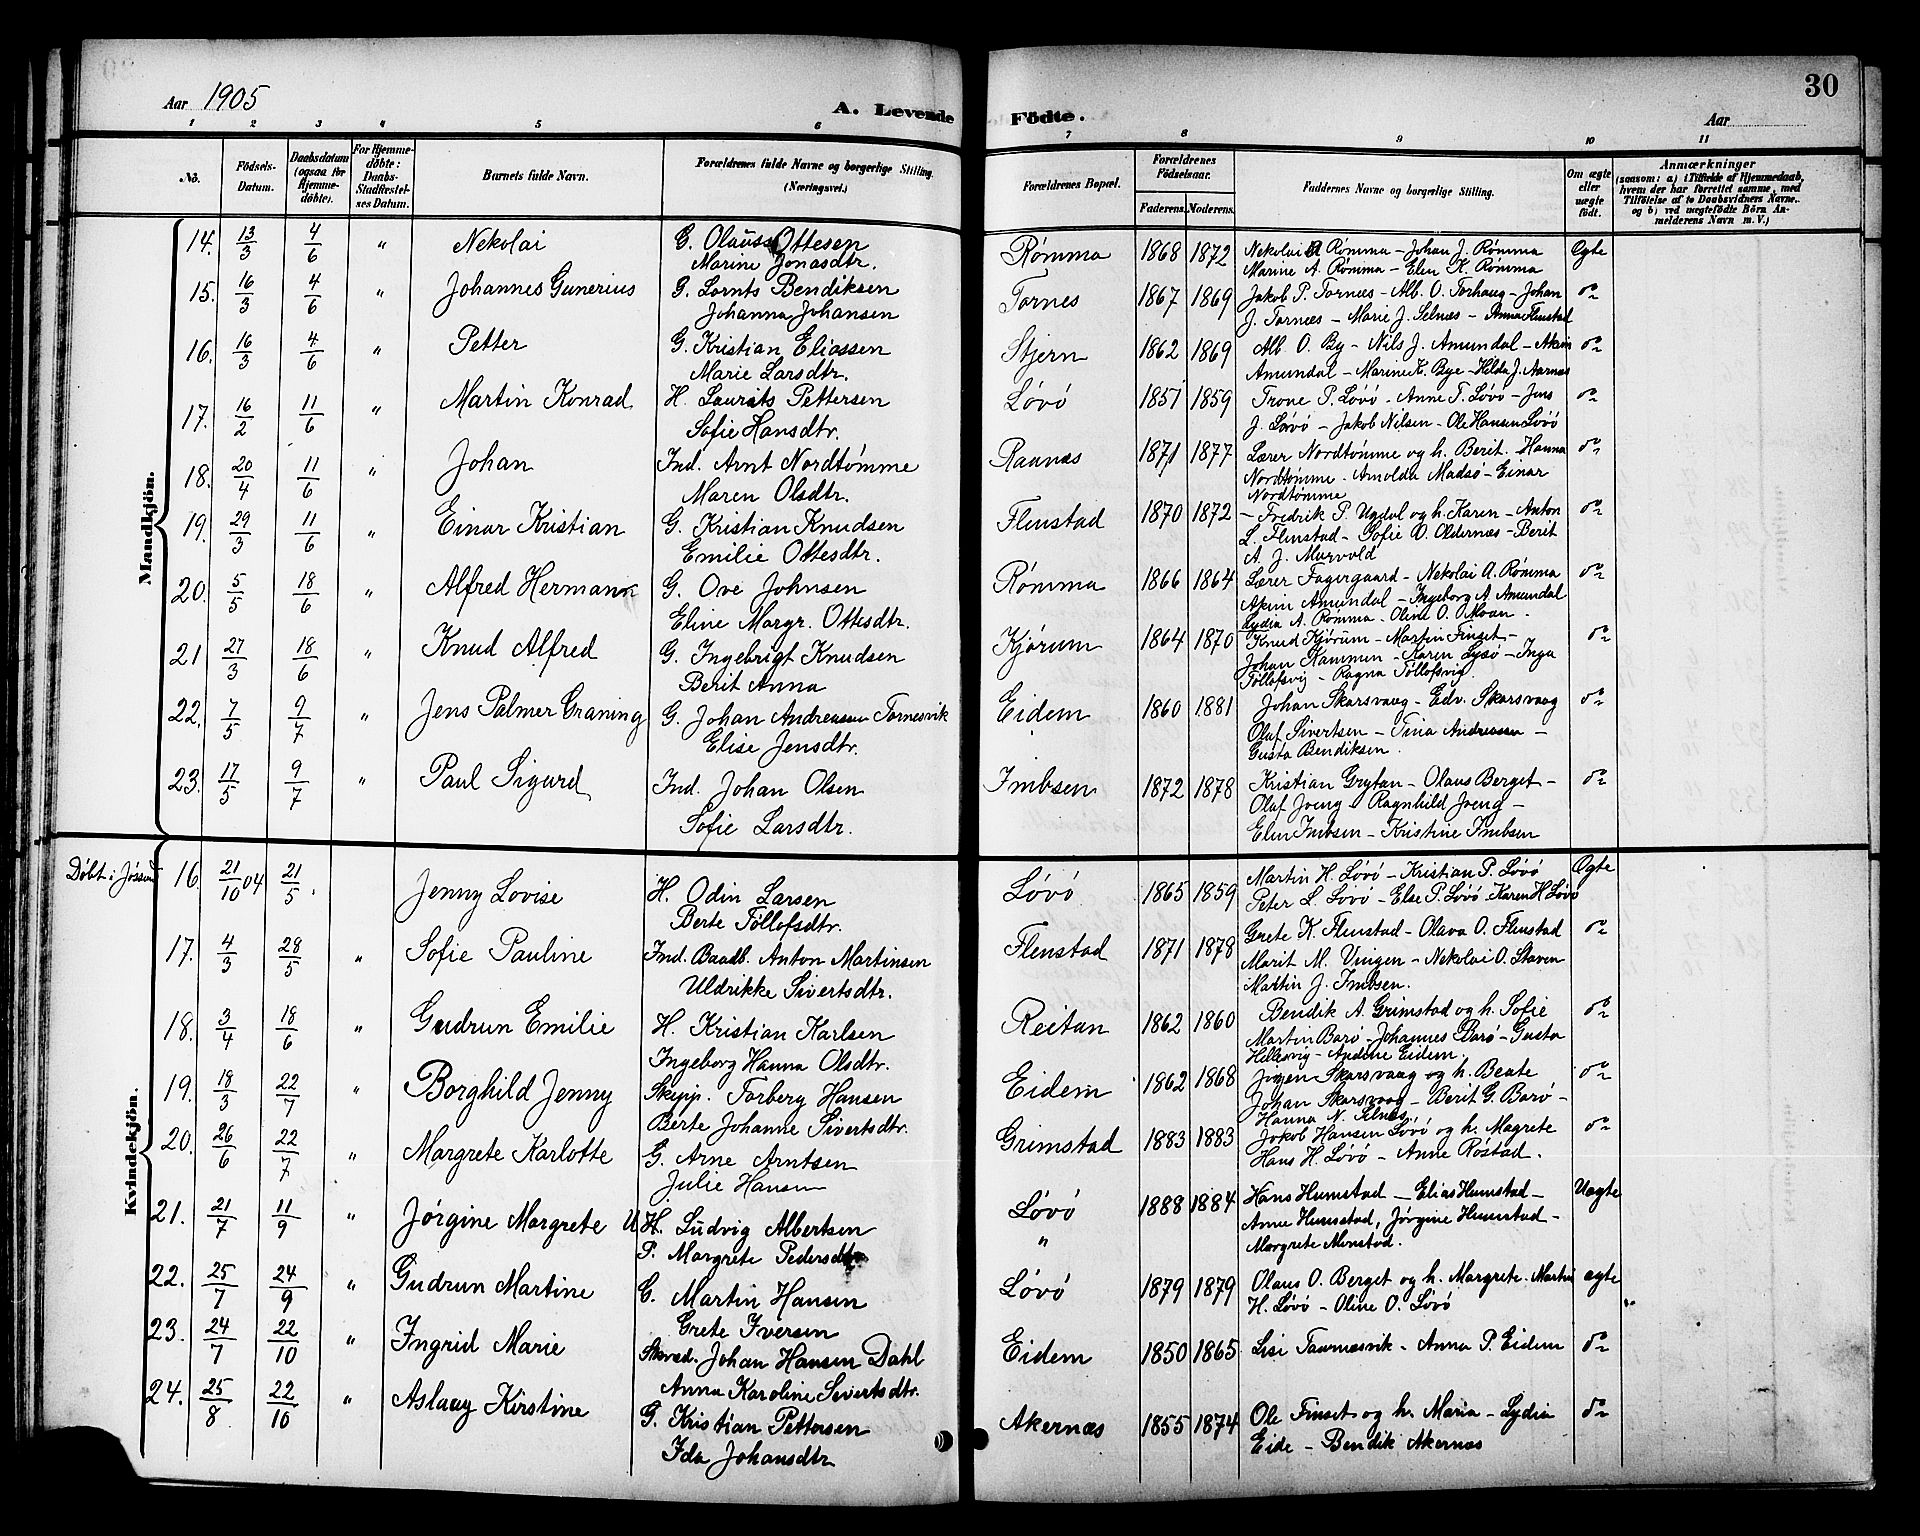 30
Aar 1905
A. Levende Födte.
Aar
1 2 3 4 5 6 7 8 9 10 11
No.
Födsels-Datum.
Daabsdatum (ogsaa for Hjemme-döbte).
For Hjemme-döbte: Daabs-Stadfæstel-ses Datum.
Barnets fulde Navn.
Forældrenes fulde Navne og borgerlige Stilling. (Næringsvei.)
Forældrenes Bopæl.
Forældrenes Födselsaar.
Faderens. Moderens.
Faddernes Navne og borgerlige Stilling.
Om ægte eller uægte födt.
Anmærkninger
(saasom: a) i Tilfælde af Hjemmedaab, hvem der har forrettet samme, med Tilföielse af to Daabsvidners Navne, og b) ved uægtefödte Börn An-melderens Navn m. V.)
Mandkjön.
14. 13/3 4/6 " Nekolai G. Olauss Ottesen Rømma 1868 1872 Nekolai A Rømma - Johan J. Rømma Ægte
Marine Jonasdtr. Marine A. Rømma - Elen K. Rømma
15. 16/3 4/6 " Johannes Gunerius G. Lornts Bendiksen Tornes 1867 1869 Jakob P. Tornæs - Alb. O. Torhaug - Johan do
Johanna Johansen J. Tornæs - Marie J. Selnæs - Anna Flenstad
16. 16/3 4/6 " Petter G. Kristian Eliassen Stjern 1862 1869 Alb. O. By - Nils J. Amundal - Akim do
Marie Larsdtr. Amundal - Marine K. Bye - Hilda J. Aarnæs
17. 16/2 11/6 " Martin Konrad H. Laurits Pettersen Løvö 1857 1859 Trone P. Løvö - Anne T. Løvö - Jens do
Sofie Hansdtr. J. Løvö - Jakob Nilsen - Ole Hansen Løvö
18. 20/4 11/6 " Johan Ind. Arnt Nordtømme Raanæs 1871 1877 Lærer Nordtømme og h. Berit - Hanna do
Maren Olsdtr. Nordtømme - Arnolda Madsø - Einar
Nordtømme
19. 29/3 11/6 " Einar Kristian G. Kristian Knudsen Flenstad 1870 1872 - Fredrik P. Ugdal og h. Karen - Anton do
Emilie Ottesdtr. L. Flenstad - Sofie O. Oldernæs - Berit
A. J. Murvold
20. 5/5 18/6 " Alfred Hermann G. Ove Johnsen Rømma 1866 1864 Lærer Fagergaard - Nekolai A. Rømma do
Eline Margr. Ottesdtr. Akim Amundal - Ingeborg A. Amundal
Lydia A. Rømma - Oline O. Moan.
21 27/3 18/6 " Knud Alfred G. Ingebrigt Knudsen Kjørum 1864 1870 Knud Kjørum - Martin Finset - do
Berit Anna Johan Kammen - Karen Lysø - Inga
Tøllofsvig - Ragna Tøllofsvig.
22. 7/5 9/7 " Jens Palmer Graning G. Johan Andreassen Tornesvik Eidem 1860 1881 Johan Skarsvaag - Edv. Skarsvaag do
Elise Jensdtr. Olaf Sivertsen - Tina Andreassen -
Gusta Bendiksen.
23. 17/5 9/7 " Paul Sigurd Ind. Johan Olsen Imbsen 1872 1878 Kristian Grytan - Olaus Berget - do
Sofie Larsdtr. Olaf Joeng - Ragnhild Joeng -
Elen Imbsen - Kristine Imbsen
Kvindekjön.
Døbt i Jøssund 16. 21/10 04 21/5 Jenny Lovise H. Odin Larsen Løvö 1865 1859 Martin H. Løvö - Kristian P. Løvö Ægte
Berte Tøllefsdtr. Peter L. Løvö - Else P. Løvö - Karen H. Løvö
17. 4/3 28/5 " Sofie Pauline Ind. Baadb. Anton Martinsen Flenstad 1871 1878 Grete K. Flenstad - Olava O. Flenstad do
Uldrikke Sivertsdtr. Marit M. Vingen - Nekolai O. Staven
Martin J. Imbsen.
18. 3/4 18/6 " Gudrun Emilie H. Kristian Karlsen Reitan 1862 1860 Bendik A. Grimstad og h. Sofie do
Ingeborg Hanna Olsdtr. Martin Barø - Johannes Barø - Gusta
Hellesvig - Andine Eidem.
19. 18/3 22/7 " Borghild Jenny Skipp. Torberg Hansen Eidem 1862 1868 Jørgen Skarsvaag og h. Beate do
Berte Johanne Sivertsdtr. Johan Skarsvaag - Berit G. Barø -
Hanna N. Selnæs
20. 26/6 22/7 " Margrete Karlotte G. Arne Arntsen Grimstad 1883 1883 Jakob Hansen Løvö og h. Magrete do
Julie Hansen Hans H. Løvö - Anne Røstad.
21. 21/7 11/9 " Jørgine Margrete U.H. Ludvig Albertsen Løvö 1888 1884 Hans Humstad - Elias Humstad - Uægte
P. Margrete Pedersdtr " Anne Humstad, Jørgine Humstad -
Margrete Monstad.
22. 25/7 24/9 " Gudrun Martine G. Martin Hansen Løvö 1879 1879 Olaus O. Berget og h. Margrete. Martin ægte
Grete Iversen H. Løvö - Oline O. Løvö
23. 24/7 22/10 " Ingrid Marie Skræd. Johan Hansen Dahl Eidem 1850 1865 Lisi Taarnæsvik - Anna P. Eidem do
Anna Karoline Sivertsdtr.
24. 25/8 22/10 " Aslaug Kirstine G. Kristian Pettersen Akernæs 1855 1874 Ole Finset og h. Maria - Lydia do
Ida Johansdtr Eide - Bendik Akernæs